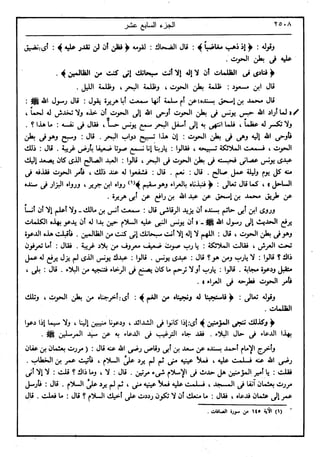 ٢٥٠٨ الجزء السابع عشر
وقوله : ﴿ إذ ذهب مغاضباً ﴾ : قال الضحاك : لقومه ﴿ فظن أن لن نقدر عليه ﴾ : أى : نضيق
عليه فى بطن الحوت .
﴿ فنادى فى الظلمات أن لا إله إلا أنت سبحانك إنى كنت من الظالمين ﴾ .
قال ابن مسعود : ظلمة بطن الحوت ، وظلمة البحر ، وظلمة الليل .
قال محمد بن إسحق بسنده : عن أم سلمة أنها سمعت أبا هريرة يقول : قال رسول الله ﷺ :
« لما أراد الله حبس يونس فى بطن الحوت أوحى الله إلى الحوت أن خذه ولا تخدش له لحماً ،
ولا تكسر له عظماً ، فلما انتهى به إلى أسفل البحر سمع يونس حساً ، فقال فى نفسه : ما هذا ؟ .
فأوحى الله إليه وهو فى بطن الحوت : إن هذا تسبيح دواب البحر . قال : وسبح وهو فى بطن
الحوت ، فسمعت الملائكة تسبيحه ، فقالوا : ياربنا إنا نسمع صوتاً ضعيفاً بأرض غريبة . قال : ذلك
عبدى يونس عصانى فحبسته فى بطن الحوت فى البحر ، قالوا : العبد الصالح الذى كان يصعد إليك
منه كل يوم وليلة عمل صالح . قال : نعم . قال : فشفعوا له عند ذلك ، فأمر الحوت فقذفه فى
الساحل » ، كما قال تعالى : ﴿ فنبذناه بالعراء وهو سقيم ﴾(١) رواه ابن جرير ، ورواه البزار فى سنده
عن طريق محمد بن إسحق عن عبد الله بن رافع عن أبى هريرة .
وروى ابن أبى حاتم بسنده أن يزيد الرقاشى قال : سمعت أنس بن مالك . ولا أعلم إلا أن أنساً
يرفع الحديث إلى رسول الله ﷺ « أن يونس النبى عليه السلام حين بدا له أن يدعو بهذه الكلمات
وهو فى بطن الحوت ، قال : اللهم لا إله إلا أنت سبحانك إنى كنت من الظالمين . فأقبلت هذه الدعوة
تحت العرش ، فقالت الملائكة : يا رب صوت ضعيف معروف من بلاد غريبة . فقال : أما تعرفون
ذاك ؟ قالوا : لا يارب ومن هو ؟ قال : عبدى يونس . قالوا : عبدك يونس الذى لم يزل يرفع له عمل
متقبل ودعوة مجابة . قالوا : يارب أو لا ترحم ما كان يصنع فى الرخاء فتنجيه من البلاء . قال : بلى ،
فأمر الحوت فطرحه فى العراء » .
وقوله تعالى : ﴿ فاستجبنا له ونجيناه من الغم ﴾ : أى : أخرجناه من بطن الحوت ، وتلك
الظلمات .
﴿ وكذلك ننجى المؤمنين ﴾ أى : إذا كانوا فى الشدائد ، ودعونا منيبين إلينا ، ولا سيما إذا دعوا
بهذا الدعاء فى حال البلاء . فقد جاء الترغيب فى الدعاء به عن سيد المرسلين ﷺ .
وأخرج الإمام أحمد بسنده عن سعد بن أبى وقاص رضى الله عنه قال : ( مررت بعثمان بن عفان
رضى الله عنه فسلمت عليه ، فملأ عينيه منى ثم لم يرد علىَّ السلام ، فأتيت عمر بن الخطاب .
فقلت : يا أمير المؤمنين هل حدث فى الإسلام شىء مرتين . قال : لا ، وما ذاك ؟ قلت : لا إلا أنى
مررت بعثمان آنفاً فى المسجد ، فسلمت عليه فملأ عينيه منى ، ثم لم يرد علىَّ السلام . قال : فأرسل
عمر إلى عثمان فدعاه ، فقال : ما منعك أن لا تكون رددت على أخيك السلام ؟ قال : ما فعلت . قال
(١) الآية ١٤٥ من سورة الصافات .